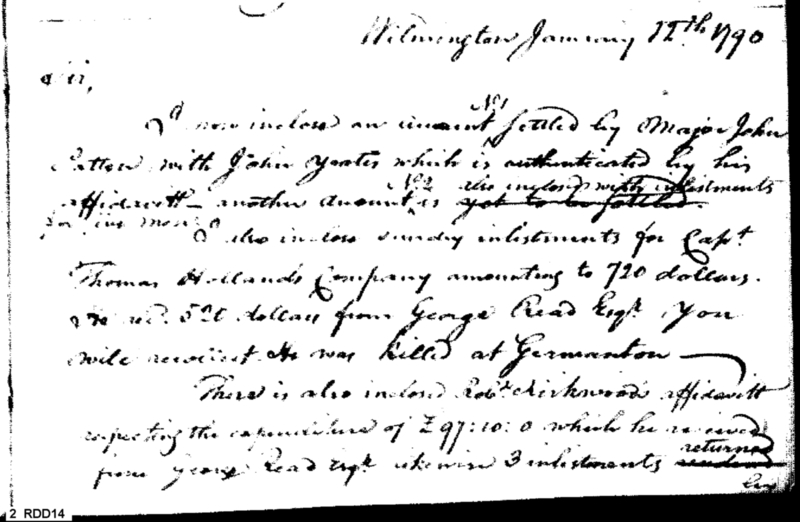 Wilmington January 12th 1790
Sir,
No 1
I now inclose an account settled by Major John
Patton with John Yeates which is authenticated by his
No 2 also inclosed with inlistments
affidavitt - another amount is yet to be settled
for five men
I also inclose sundry inlistments for Capt
Thomas Holland's Company amounting to 720 dollars.
He recd. dollars from George Read Esqr. You
will recollect He was killed at Germanton
There is also inclosed Robt. Kirkwood's affidavitt
respecting the expenditure of £97:10:0 which he received
returned
from George Read Esqr. likewise 3 inlistments
by
2 RDD14